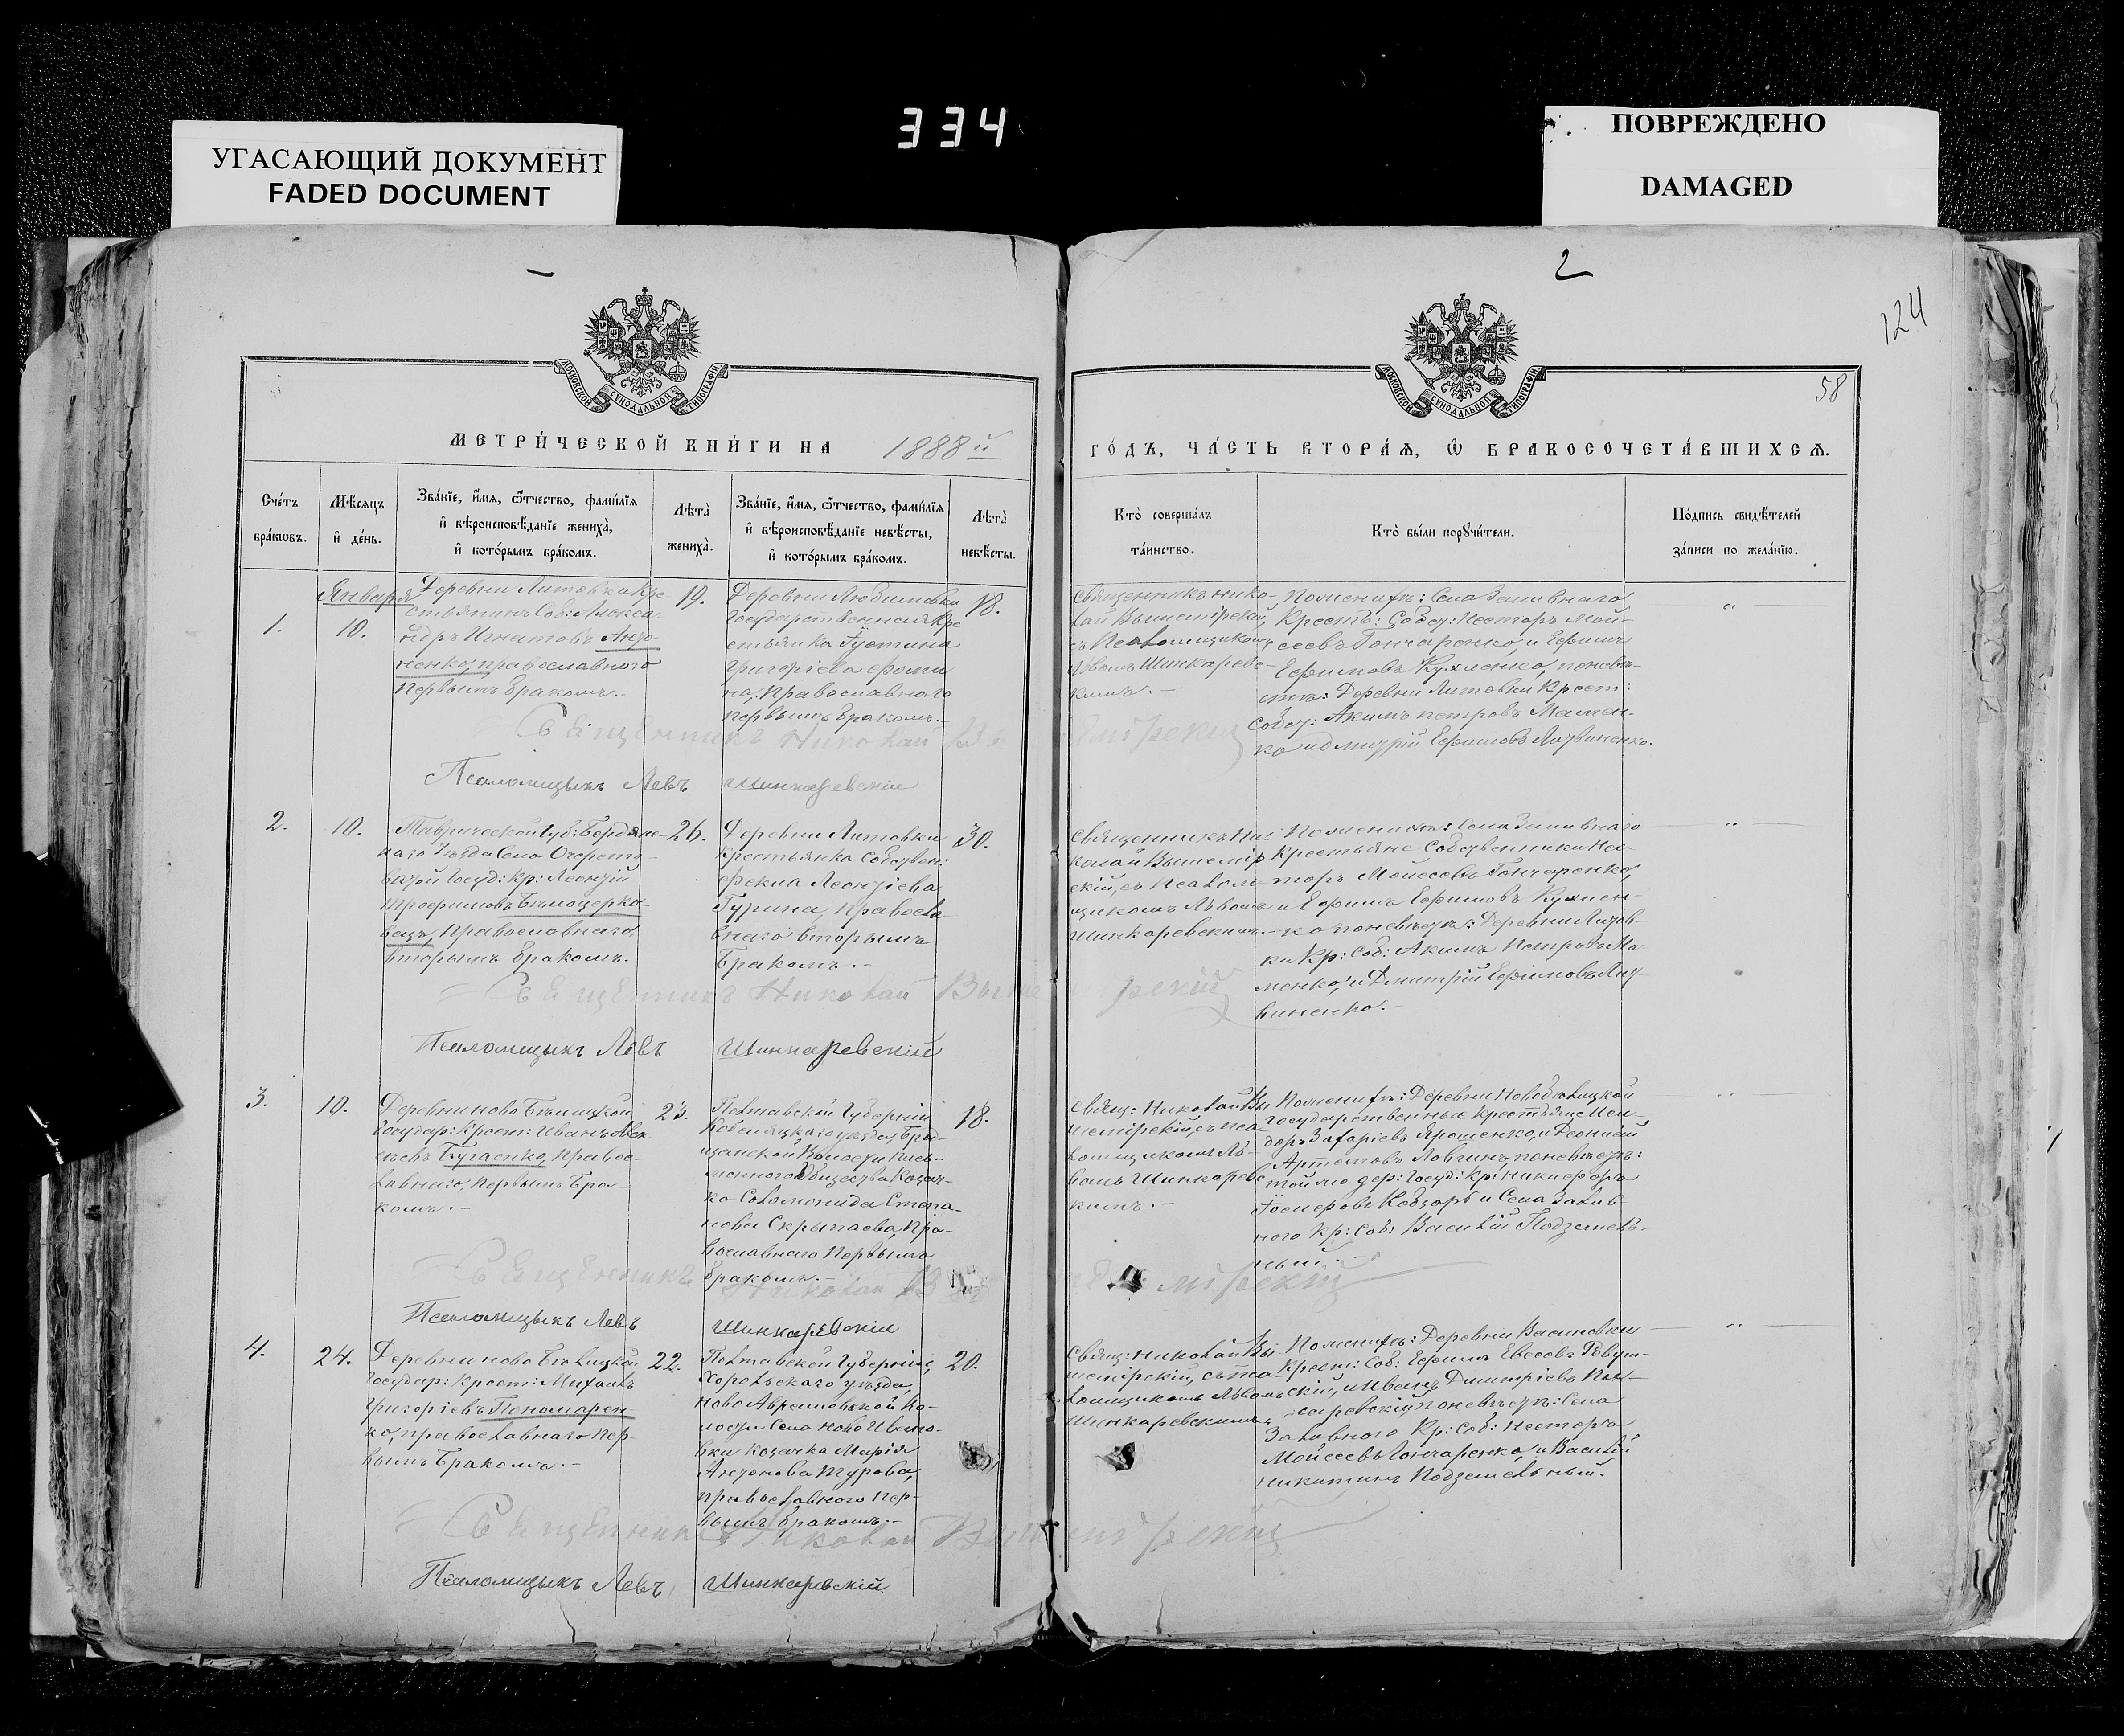 334
УГАСАЮЩИЙ ДОКУМЕНТ
FADED DOCUMENT
ПОВРЕЖДЕНО
DAMAGED
2
124
58
МОСКОВСКОЙ СУНОДАЛЬНОЙ ТИПОГРАФІИ
МОСКОВСКОЙ СУНОДАЛЬНОЙ ТИПОГРАФІИ
МЕТРИ́ЧЕСКОЙ КНИ́ГИ НА 1888й
ГО́ДЪ, ЧА́СТЬ ВТОРА́Ѧ, Ѿ БРАКОСОЧЕТА́ВШИХСѦ.
Сче́тъ бра́кѡвъ.
Мѣ́сяцъ и҆ де́нь.
Зва́нїе, и҆́мя, ѻ҆́тчество, фами́лїя
и҆ вѣроисповѣ́данїе жениха̀,
и҆ кото́рымъ бра́комъ.
Лѣта̀ жениха̀.
Зва́нїе, и҆́мя, ѻ҆́тчество, фами́лїя
и҆ вѣроисповѣ́данїе невѣ́сты,
и҆ кото́рымъ бра́комъ.
Лѣта̀ невѣ́сты.
Кто̀ соверша́лъ та́инство.
Кто̀ бы́ли порꙋчи́тели.
По́дпись свидѣ́телей за́писи по жела́нїю.
1.
Января
10.
Деревни Литовки Кре-
стьянинъ Соб: Алекса-
ндръ Игнатовъ
ненко, православнаго
первымъ бракомъ.-
19.
Деревни Любимовки
Государственная Кре
стьянка Іустина
Григоріева Фоми
на, Православнаго
первымъ бракомъ.-
18.
Священникъ Нико-
лай Вышемірскій,
съ Псаломщикомъ
Львомъ Шинкаревс-
кимъ.-
По женихѣ: Села Заливнаго
Крест: Собст: Несторъ Мой-
сеевъ Гончаренко, и Ефимъ
Ефимовъ Кухленко, по невѣ-
стѣ: Деревни Литовки Крест:
Собст: Акимъ Петровъ
ко и Дмитрій Ефимовъ Литвиненко.
Священникъ Николай Вышемірскій
Псаломщыкъ Левъ Шинкаревскій
2.
10.
Таврической Губ: Бердянс-
каго Уѣзда Села Очерето-
ватой Госуд: Кр: Леонтій
Трофимовъ Бѣлоцерко-
вецъ, Православнаго,
вторымъ бракомъ.
26.
Деревни Литовки
Крестьянка Собствен:
Фекла Леонтіева
Гурина, Правосла-
внаго вторымъ
бракомъ.-
30.
Священникъ Ни-
колай Вышемір
скій, съ Псалом-
щикомъ Львомъ
Шинкаревскимъ.-
По женихѣ: Села Заливнаго
Крестьяне Собственники Нес-
торъ Мойсеевъ Гончаренко,
и Ефимъ Ефимовъ Кухлен-
ко по невѣстѣ: Деревни Литов-
ки Кр: Соб: Акимъ Петровъ Ма-
ленко, и Дмитрій Ефимовъ Лит-
виненко.-
Священникъ Николай Вышемірскій
Псаломщыкъ Левъ Шинкаревскій
3.
10.
Деревни Ново Бѣлицкой
Государ: Крест: Иванъ Алек
сѣевъ Бугаенко, Правос-
лавнаго, Первымъ бра-
комъ.-
23.
Полтавской Губерніи
Кобеляцкаго уѣзда,
щанской Волости
Общества Козач-
ка Соломонида Степа-
нова Скрыпаова, Пра-
вославнаго Первымъ
бракомъ.-
18.
Свящ: Николай Вы
шемірскій, съ Пса
ломщикомъ Ль-
вомъ Шинкаревс
кимъ.-
По женихѣ: Деревни Новобѣлицкой
Государственные Крестьяне
доръ Захаріевъ Ярошенко, и Леонтій
Артемовъ Ловгинъ, по невѣстѣ:
той же дер: Госуд: Кр: Никифоръ
Кобзарь и Села Залив-
ного Кр: Соб: Василій Подземель-
ный.-
Священникъ Николай Вышемірскій
Псаломщыкъ Левъ Шинкаревскій
4.
24.
Деревни Ново Бѣлицкой
Государ: Крест: Михаилъ
Григоріевъ Пономарен-
ко, православнаго Пер-
вымъ бракомъ.-
22.
Полтавской Губерніи,
Хорольскаго уѣзда,
Ново Аврамовской Во-
лости Села Ново Ивано-
вки Козачка Марія
Антонова Турова,
православнаго Пер-
вымъ бракомъ.-
20.
Свящ: Николай Вы-
шемірскій, съ Пса-
ломщикомъ Львомъ
Шинкаревскимъ.
По женихѣ: Деревни Васиновки
Крест: Соб: Ефимъ Евсеевъ
скій, и Иванъ Дмитріевъ
по невѣстѣ: Села
Заливного Кр: Соб: Несторъ
Мойсеевъ Гончаренко, и Василій
Никитинъ Подземельный.
Священникъ Николай Вышемірскій
Псаломщыкъ Левъ Шинкаревскій